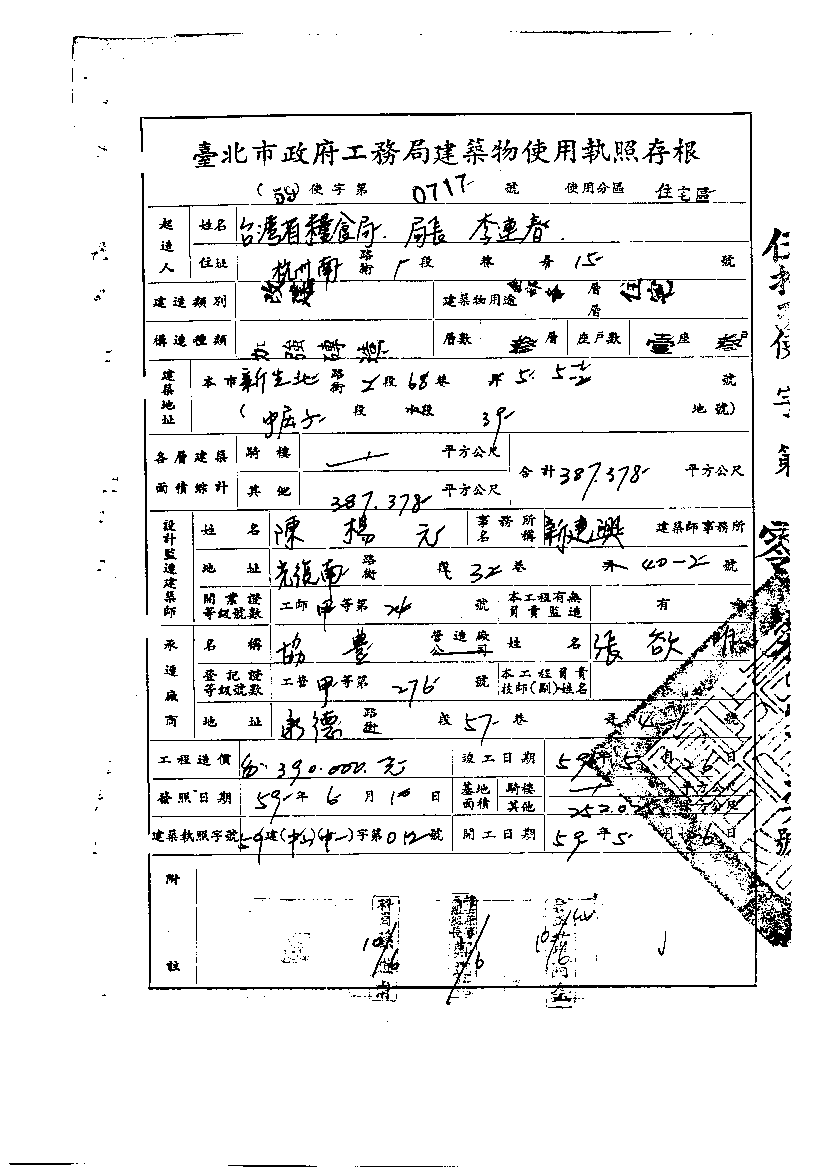 臺北市政府工務局建築物使用執照存根
(59)使字第 0717 號 使用分區 住宅區
起造人 姓名 台灣省糧食局 局長 李連春
住址 杭州南 路街 1 段 巷 弄 15 號
建造類別 建築物用途 層 住宅 層
構造種類 加強磚造 層數 叁 層 座戶數 壹 座 叁 戶
建築地址 本市 新生北 路街 2 段 68 巷 弄 5. 號
( 段 小段 39 地號)
各層建築面積綜計 騎樓 平方公尺 合計 387.378 平方公尺
其他 387.378 平方公尺
設計監造建築師 姓名 陳楊元 事務所名稱 新建興 建築師事務所
地址 光復南 路街 段 32 巷 弄 40-2 號
開業證等級號數 工師 甲 等第 號 本工程有無負責監造 有
承造廠商 名稱 協豊 營造廠公司 姓名 張欲
登記證等級號數 工營 甲 等第 276 號 本工程負責技師(副)姓名
地址 永德 路街 段 57 巷 弄 4 號
工程造價 390.000.元 竣工日期 59 年 5 月 26 日
發照日期 59 年 6 月 10 日 基地面積 騎樓 平方公尺
其他 252.0 平方公尺
建築執照字號 59 建(中山)(中一)字第 012 號 開工日期 59 年 5 月 日
附註
10/6
/6
10/6
使字第零
號